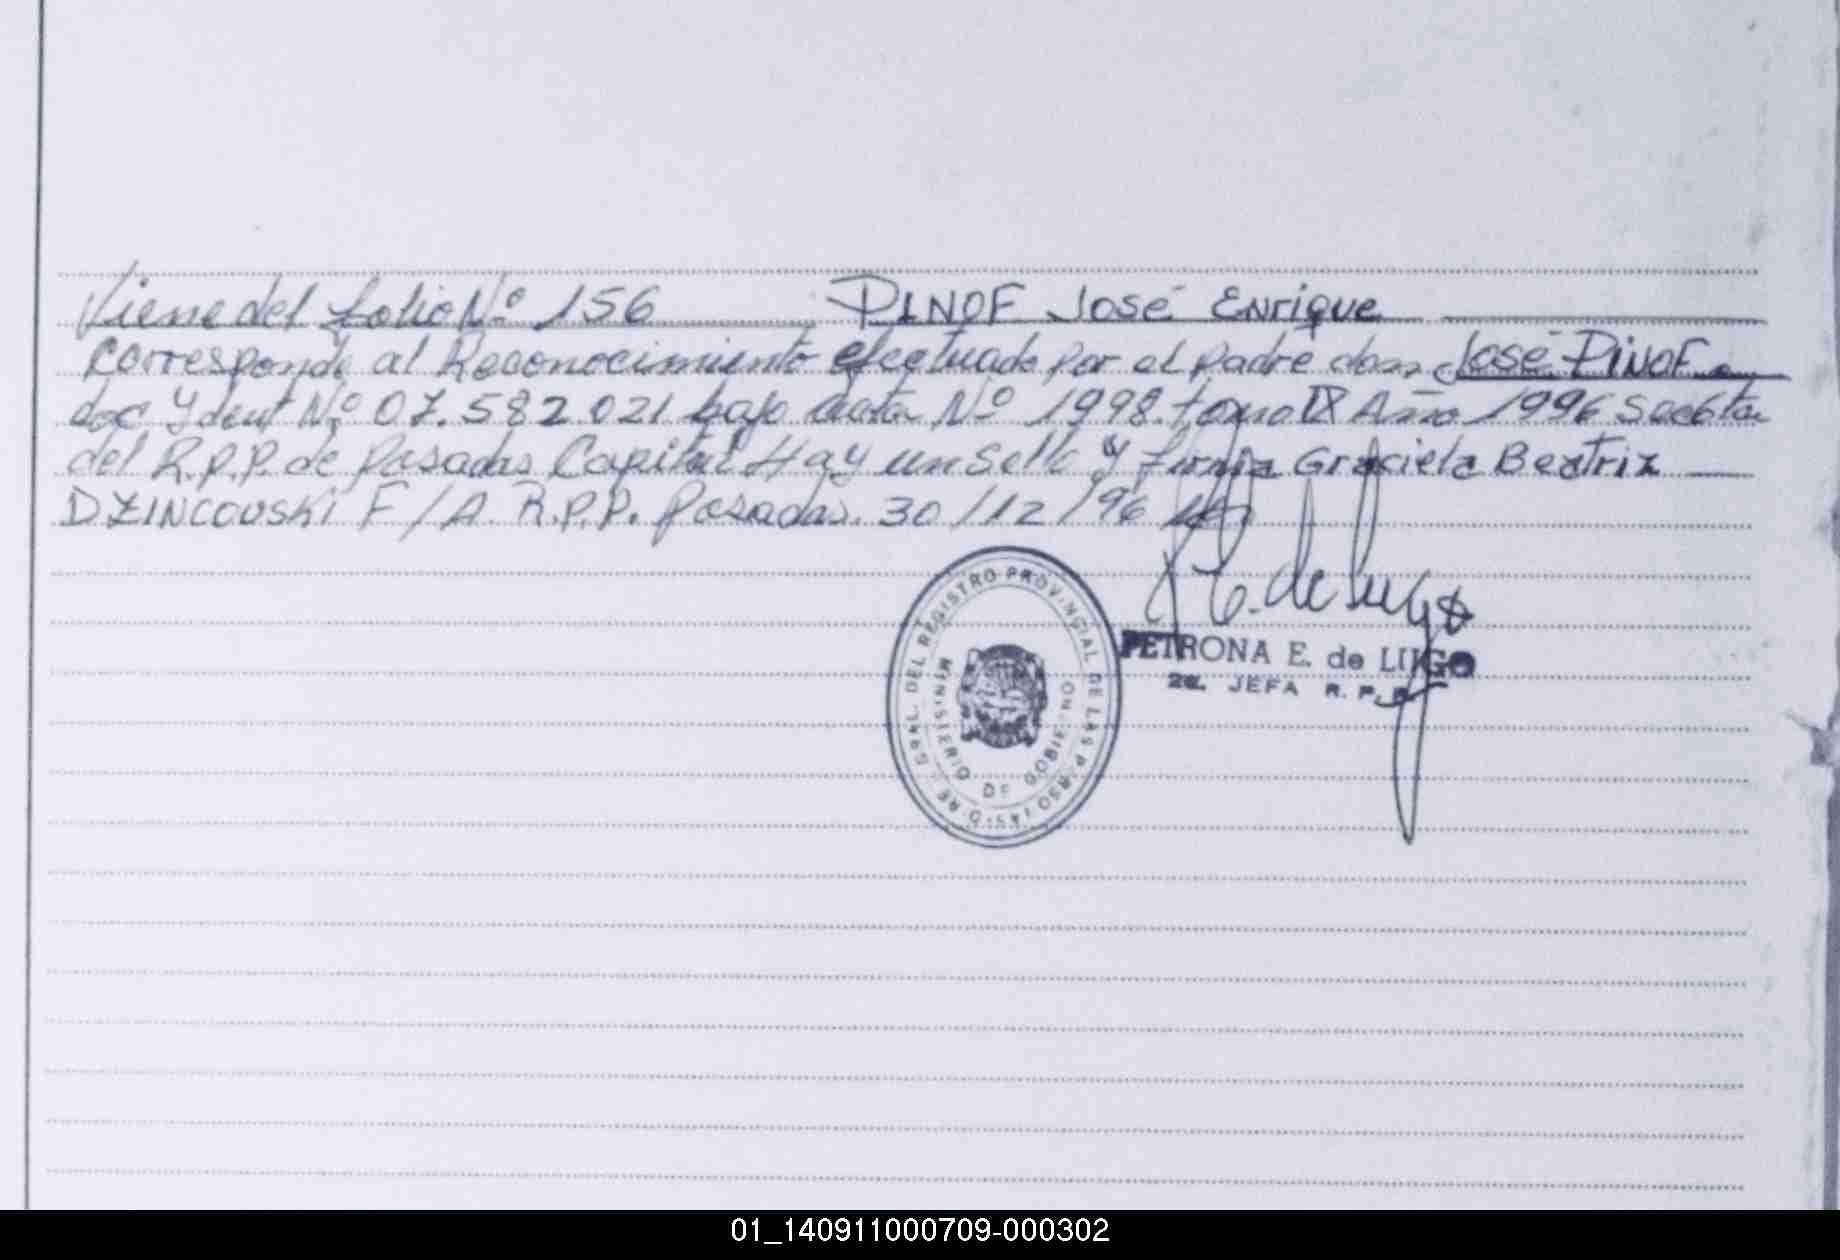 Viene del folio Nº 156 PINOF José Enrique
Corresponde al Reconocimiento efectuado por el padre don José PINOF
doc Ydent Nº 07.582.021 bajo acta Nº 1998 tomo IX Año 1996 Secc 6ta
del R.P.P. de Posadas Capital Hay un Sello y firma Graciela Beatriz
DZINCOUSKI F/A. R.P.P. Posadas. 30/12/96
P E. de Lugo
PETRONA E. de LUGO
2a. JEFA R. P. P.
DEL REGISTRO PROVINCIAL DE LAS PERSONAS
MINISTERIO DE GOBIERNO
01_140911000709-000302